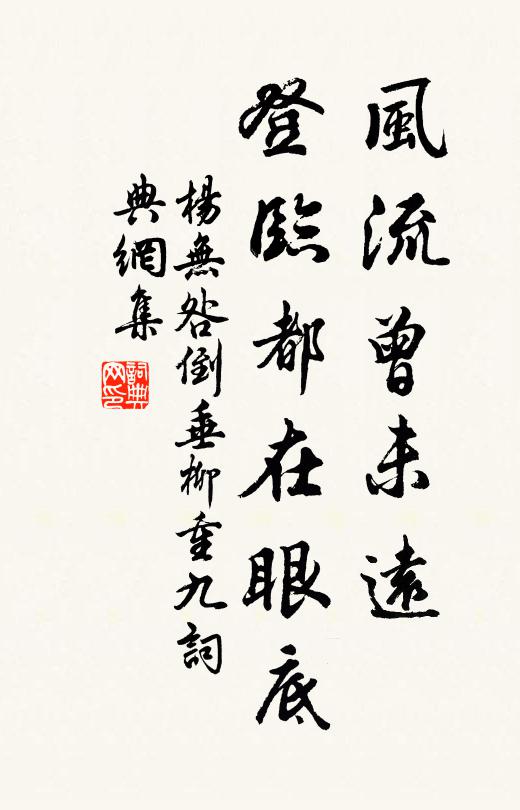 風流曾未遠
登臨都在眼底
楊無咎倒垂柳重九詞
典網集
詞典
网印